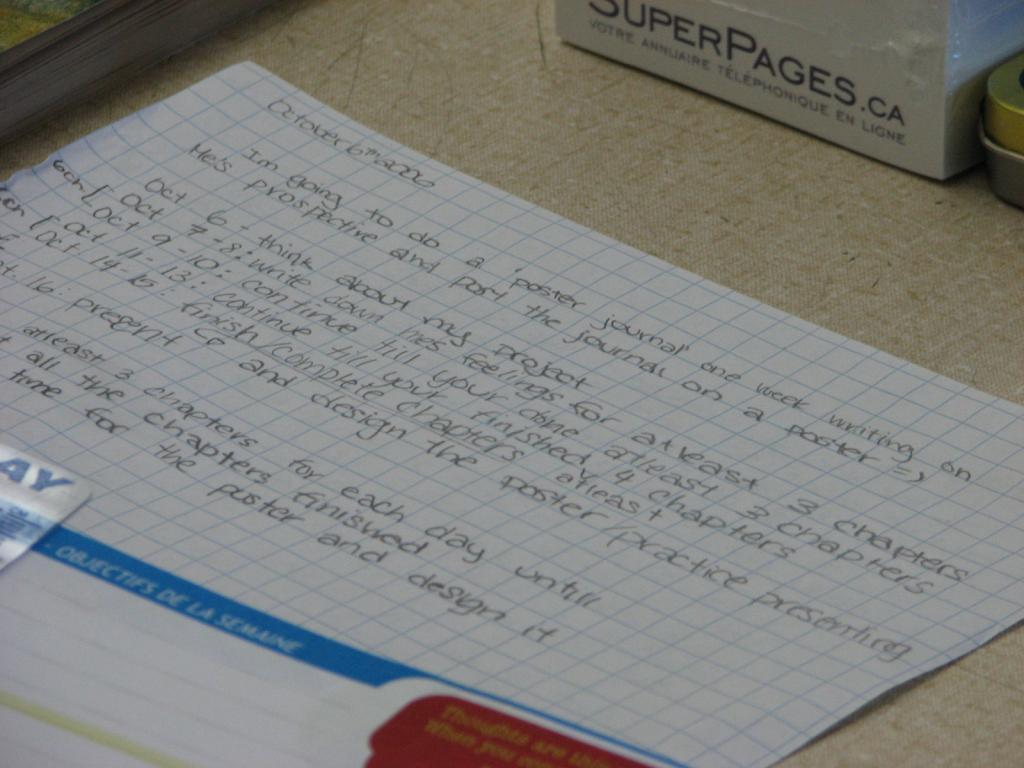 SUPERPAGES.CA
VOTRE ANNUAIRE TÉLÉPHONIQUE EN LIGNE
October 6th 2006
Im going to do a 'poster journal' one week writing on
He's prospective and part the journal on a poster =)
Oct 6 - think about my project
Oct 7-8: write down his feelings for atleast 3 chapters
Oct 9-10: continue till your done atleast 3 chapters
Oct 11-13: continue till your finished 4 chapters
Oct 14-16: finish/complete chapters atleast
16: present and design the poster/practice presenting
atleast 3 chapters for each day untill
all the chapters finished
time for the poster and design it
AY
OBJECTIFS DE LA SEMAINE
Thoughts are
When you